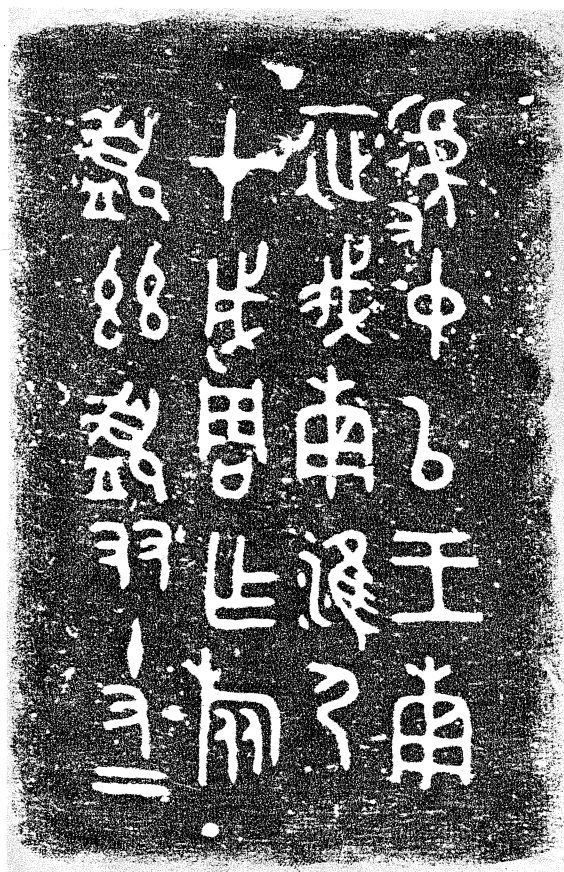 虢中以王南
征伐南淮尸
才成周乍旅
盨兹盨友十又二